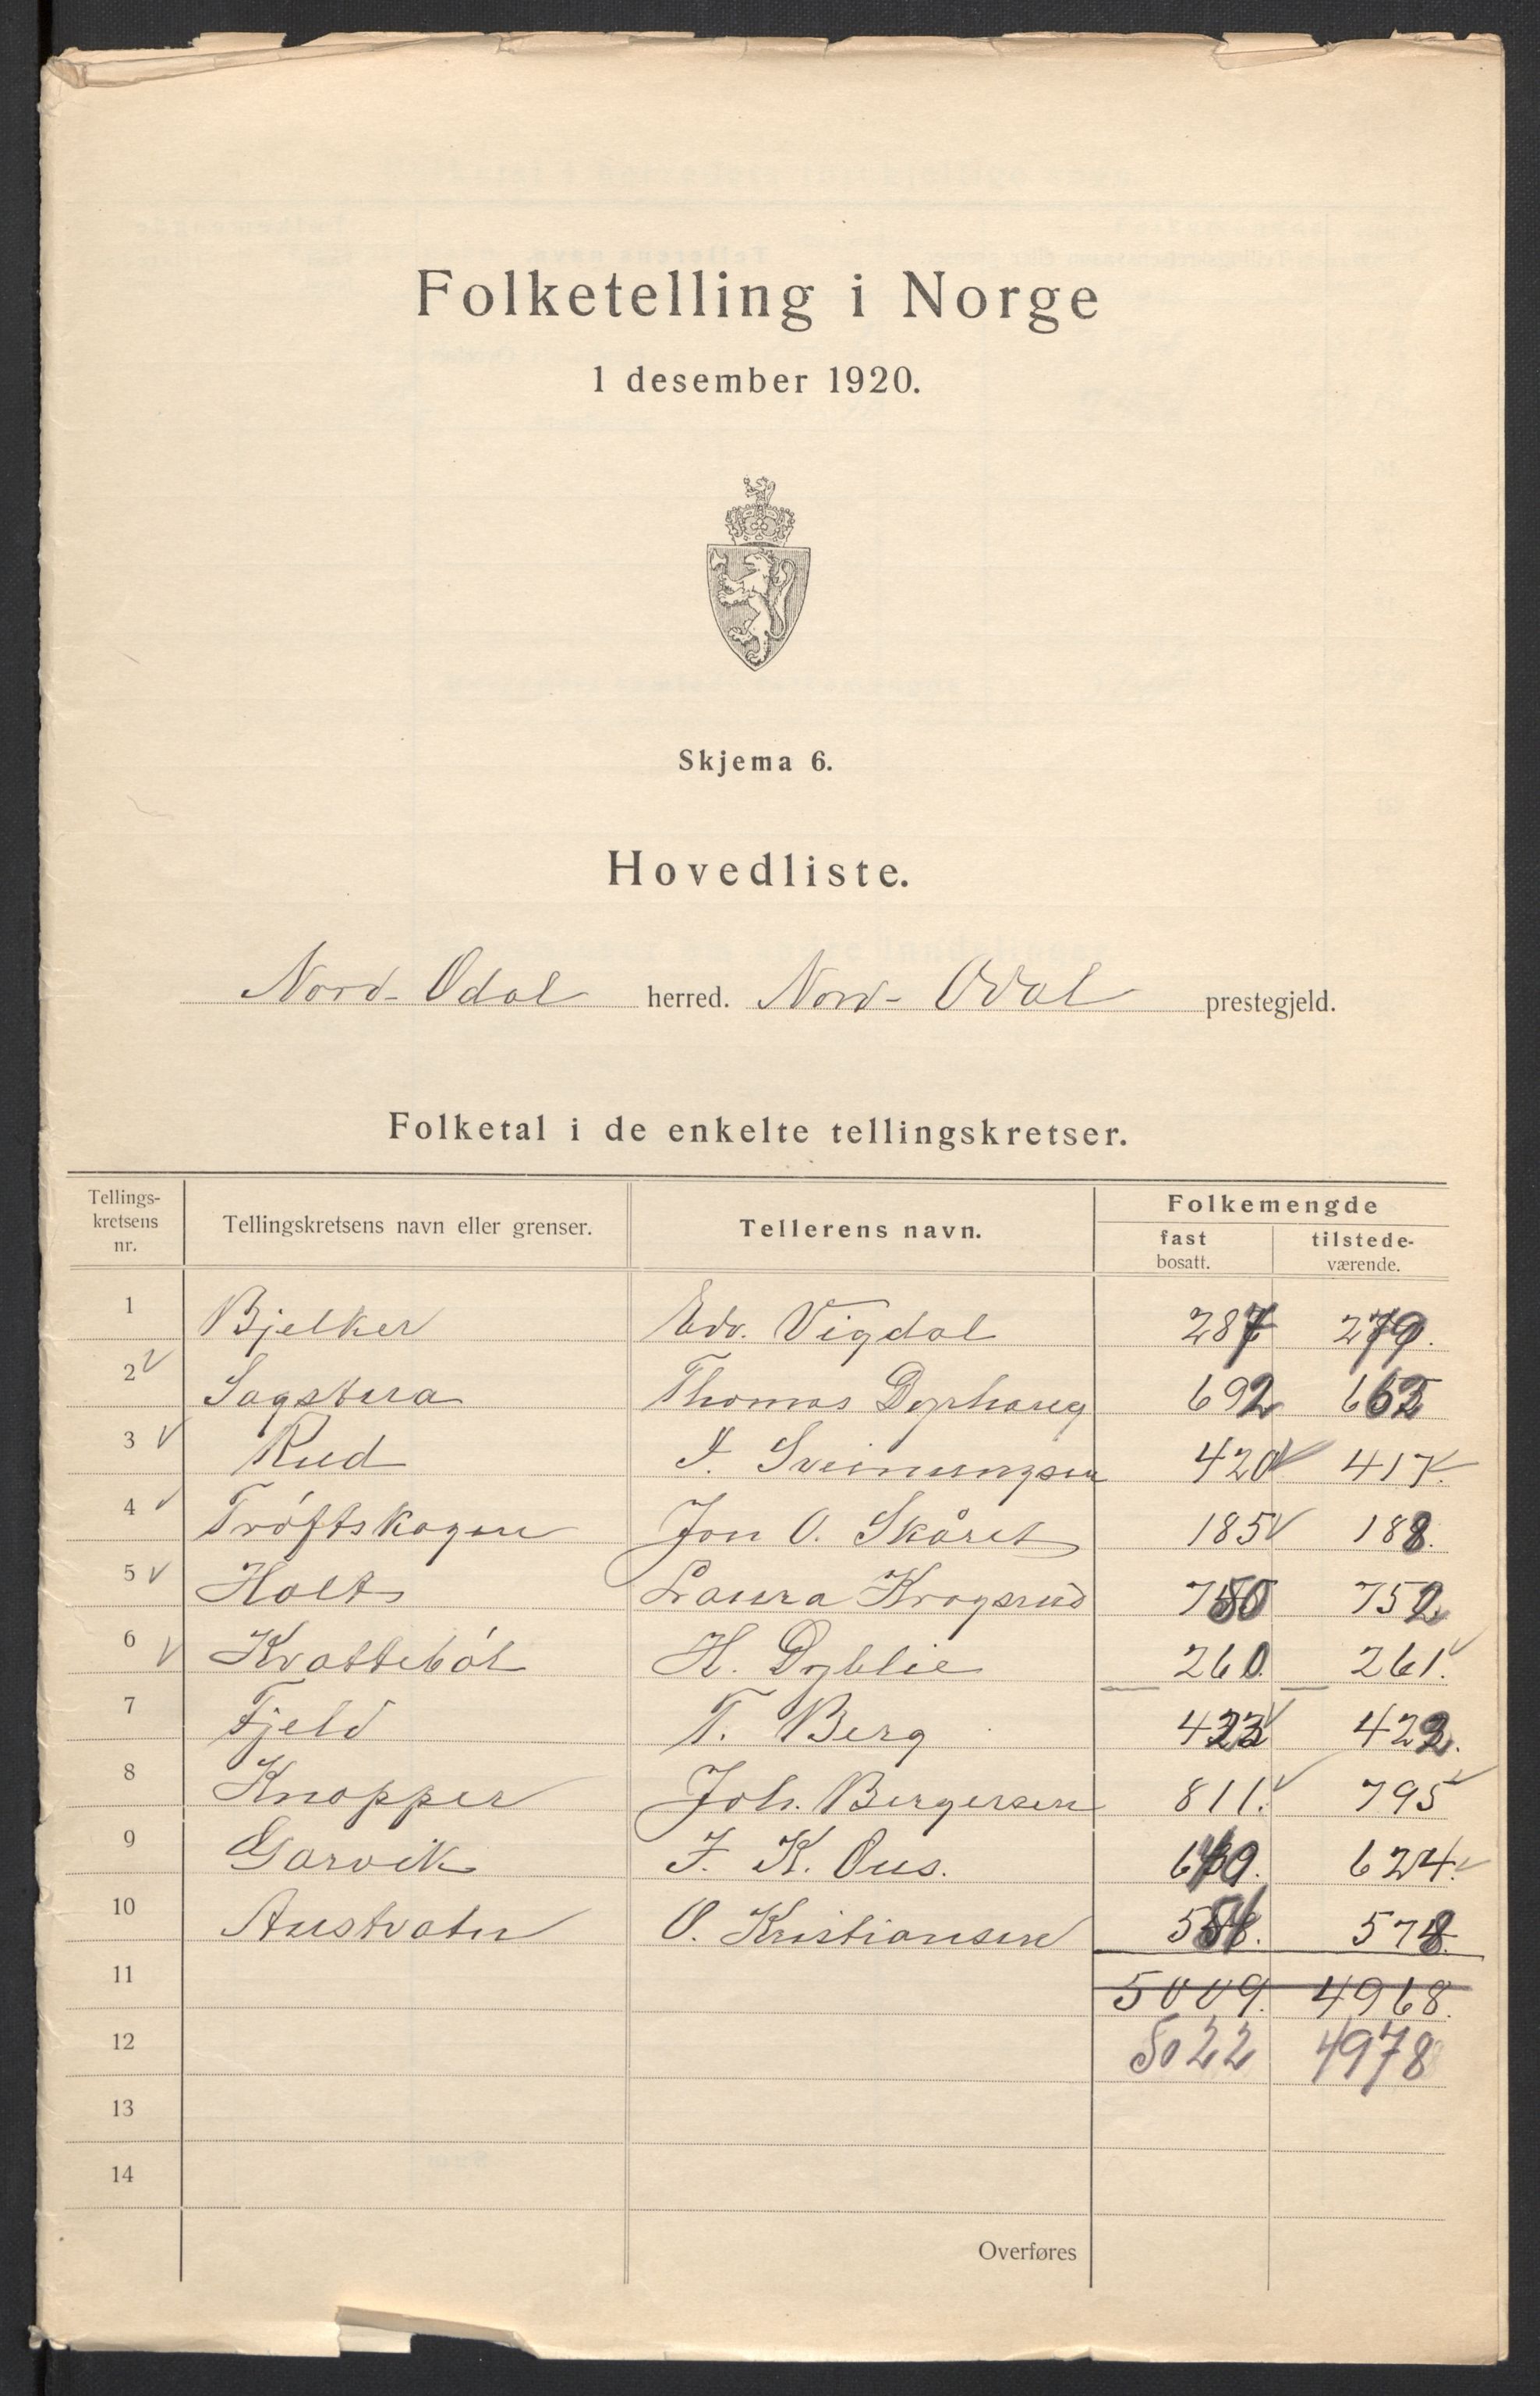 Folketelling i Norge
1 desember 1920.
Skjema 6.
Hovedliste.
Nord-Odal herred. Nord-Odal prestegjeld.
Folketal i de enkelte tellingskretser.
Tellings-kretsens nr. Tellingskretsens navn eller grenser. Tellerens navn. Folkemengde
fast bosatt. tilstede-værende.
1 Bjelker Edv. Vigdal 287 279.
2 Sagstua Thomas Dyphaug 692 662
3 Rud S. Sveinungsen 420 417.
4 Tröftskogen Jon O. Skåret 185 188.
5 Holt Laura Krogsrud 750 752
6 Kvatteböl H. Dyblie 260. 261.
7 Fjeld T. Berg 423 422.
8 Knapper Joh. Bergersen 811. 795
9 Garvik F. K. Ous. 640. 624.
10 Austvatn O. Kristiansen 554. 578.
11 5009. 4968.
12 5022 4978
13
14
Overføres